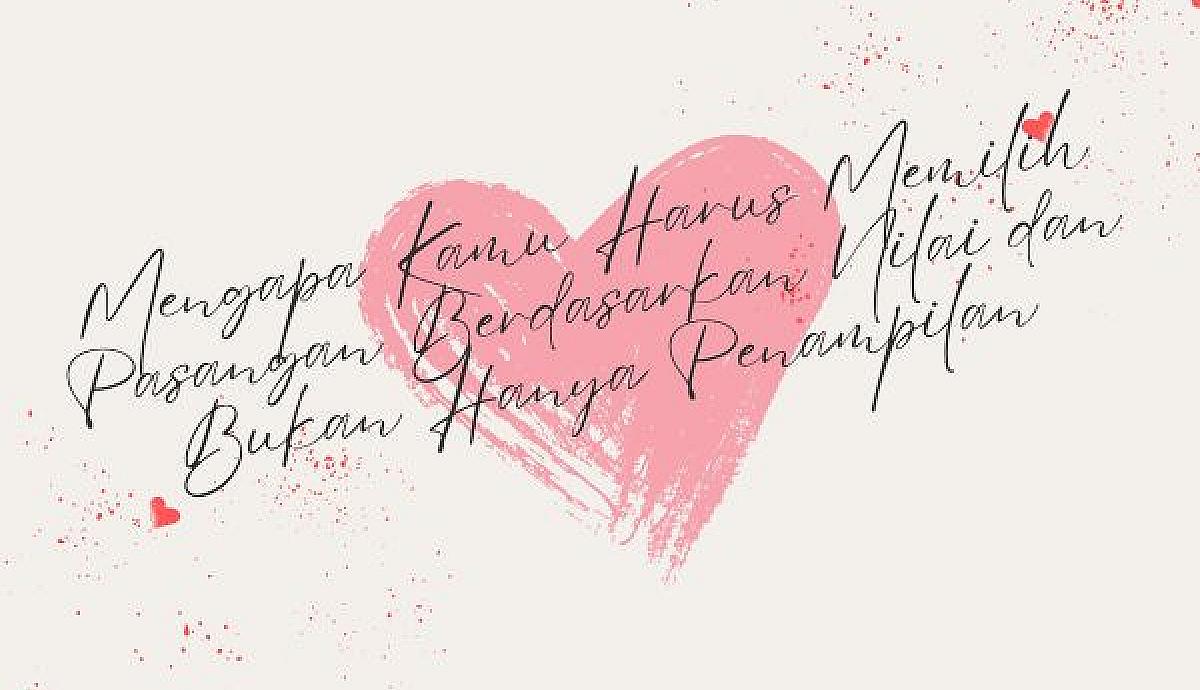 Mengapa Kamu Harus Memilih
Pasangan Berdasarkan Nilai dan
Bukan Hanya Penampilan